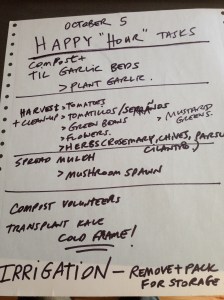 OCTOBER 5
HAPPY "HOUR" TASKS
COMPOST +
TIL GARLIC BEDS
> PLANT GARLIC.
HARVEST > TOMATOES
+ CLEAN-UP > TOMATILLOS/SERRANOS
> GREEN BEANS > MUSTARD
> FLOWERS. GREENS.
> HERBS (ROSEMARY, CHIVES, PARSLEY
CILANTRO)
SPREAD MULCH
> MUSHROOM SPAWN
COMPOST VOLUNTEERS
TRANSPLANT KALE
COLD FRAME!
IRRIGATION – REMOVE + PACK
FOR STORAGE